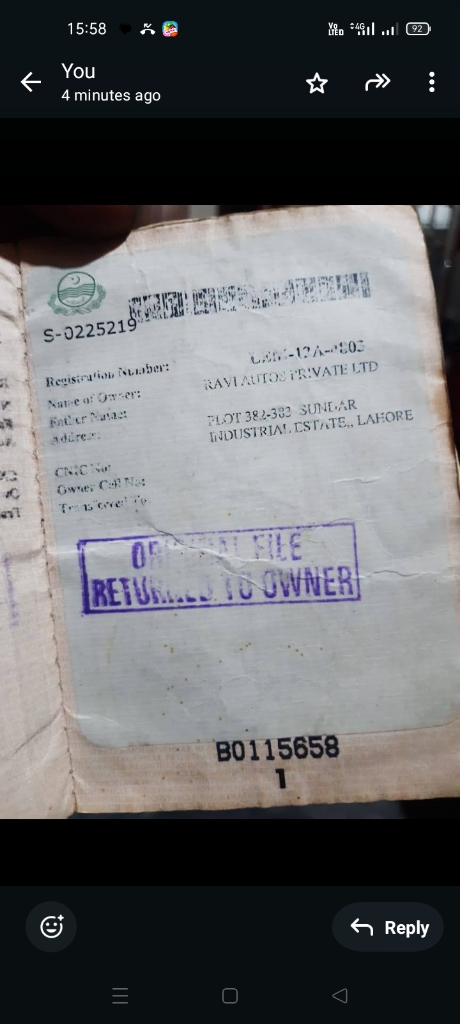 15:58
Vo LTED 4G 92
You
4 minutes ago
S-0225219
Registration Number:
Name of Owner: RAVI AUTOS PRIVATE LTD
Father Name:
Address: PLOT 382-383 SUNDAR
INDUSTRIAL ESTATE,, LAHORE
CNIC No:
Owner Cell No:
Transferred To:
ORIGINAL FILE
RETURNED TO OWNER
B0115658
1
Reply